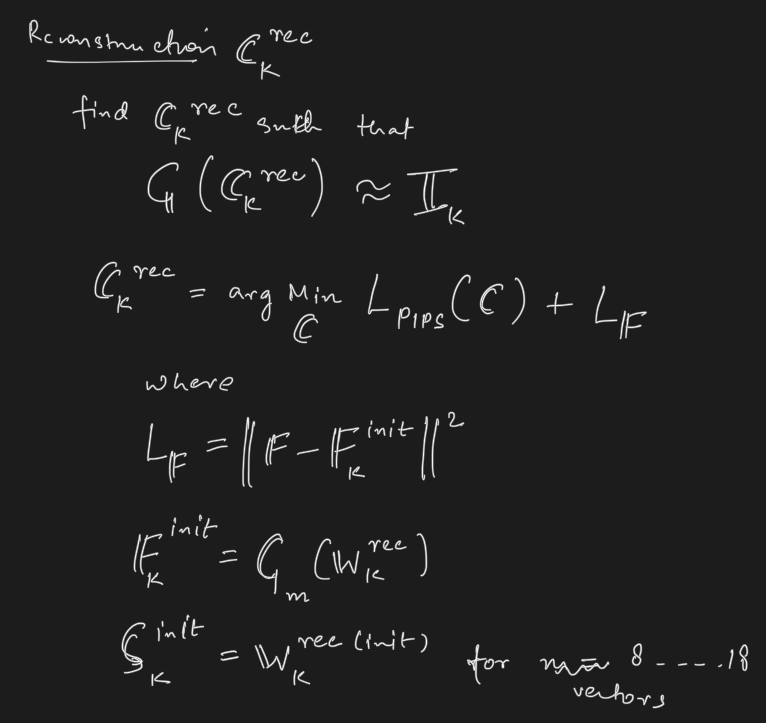 Reconstruction C_K^rec
find C_K^rec such that
G(C_K^rec) ≈ I_K
C_K^rec = arg Min_C L_PIPS(C) + L_F
where
L_F = ||F - F_K^init||^2
F_K^init = G_m(W_K^rec)
S_K^init = W_K^rec (init) for 8 - - - - .18
vectors